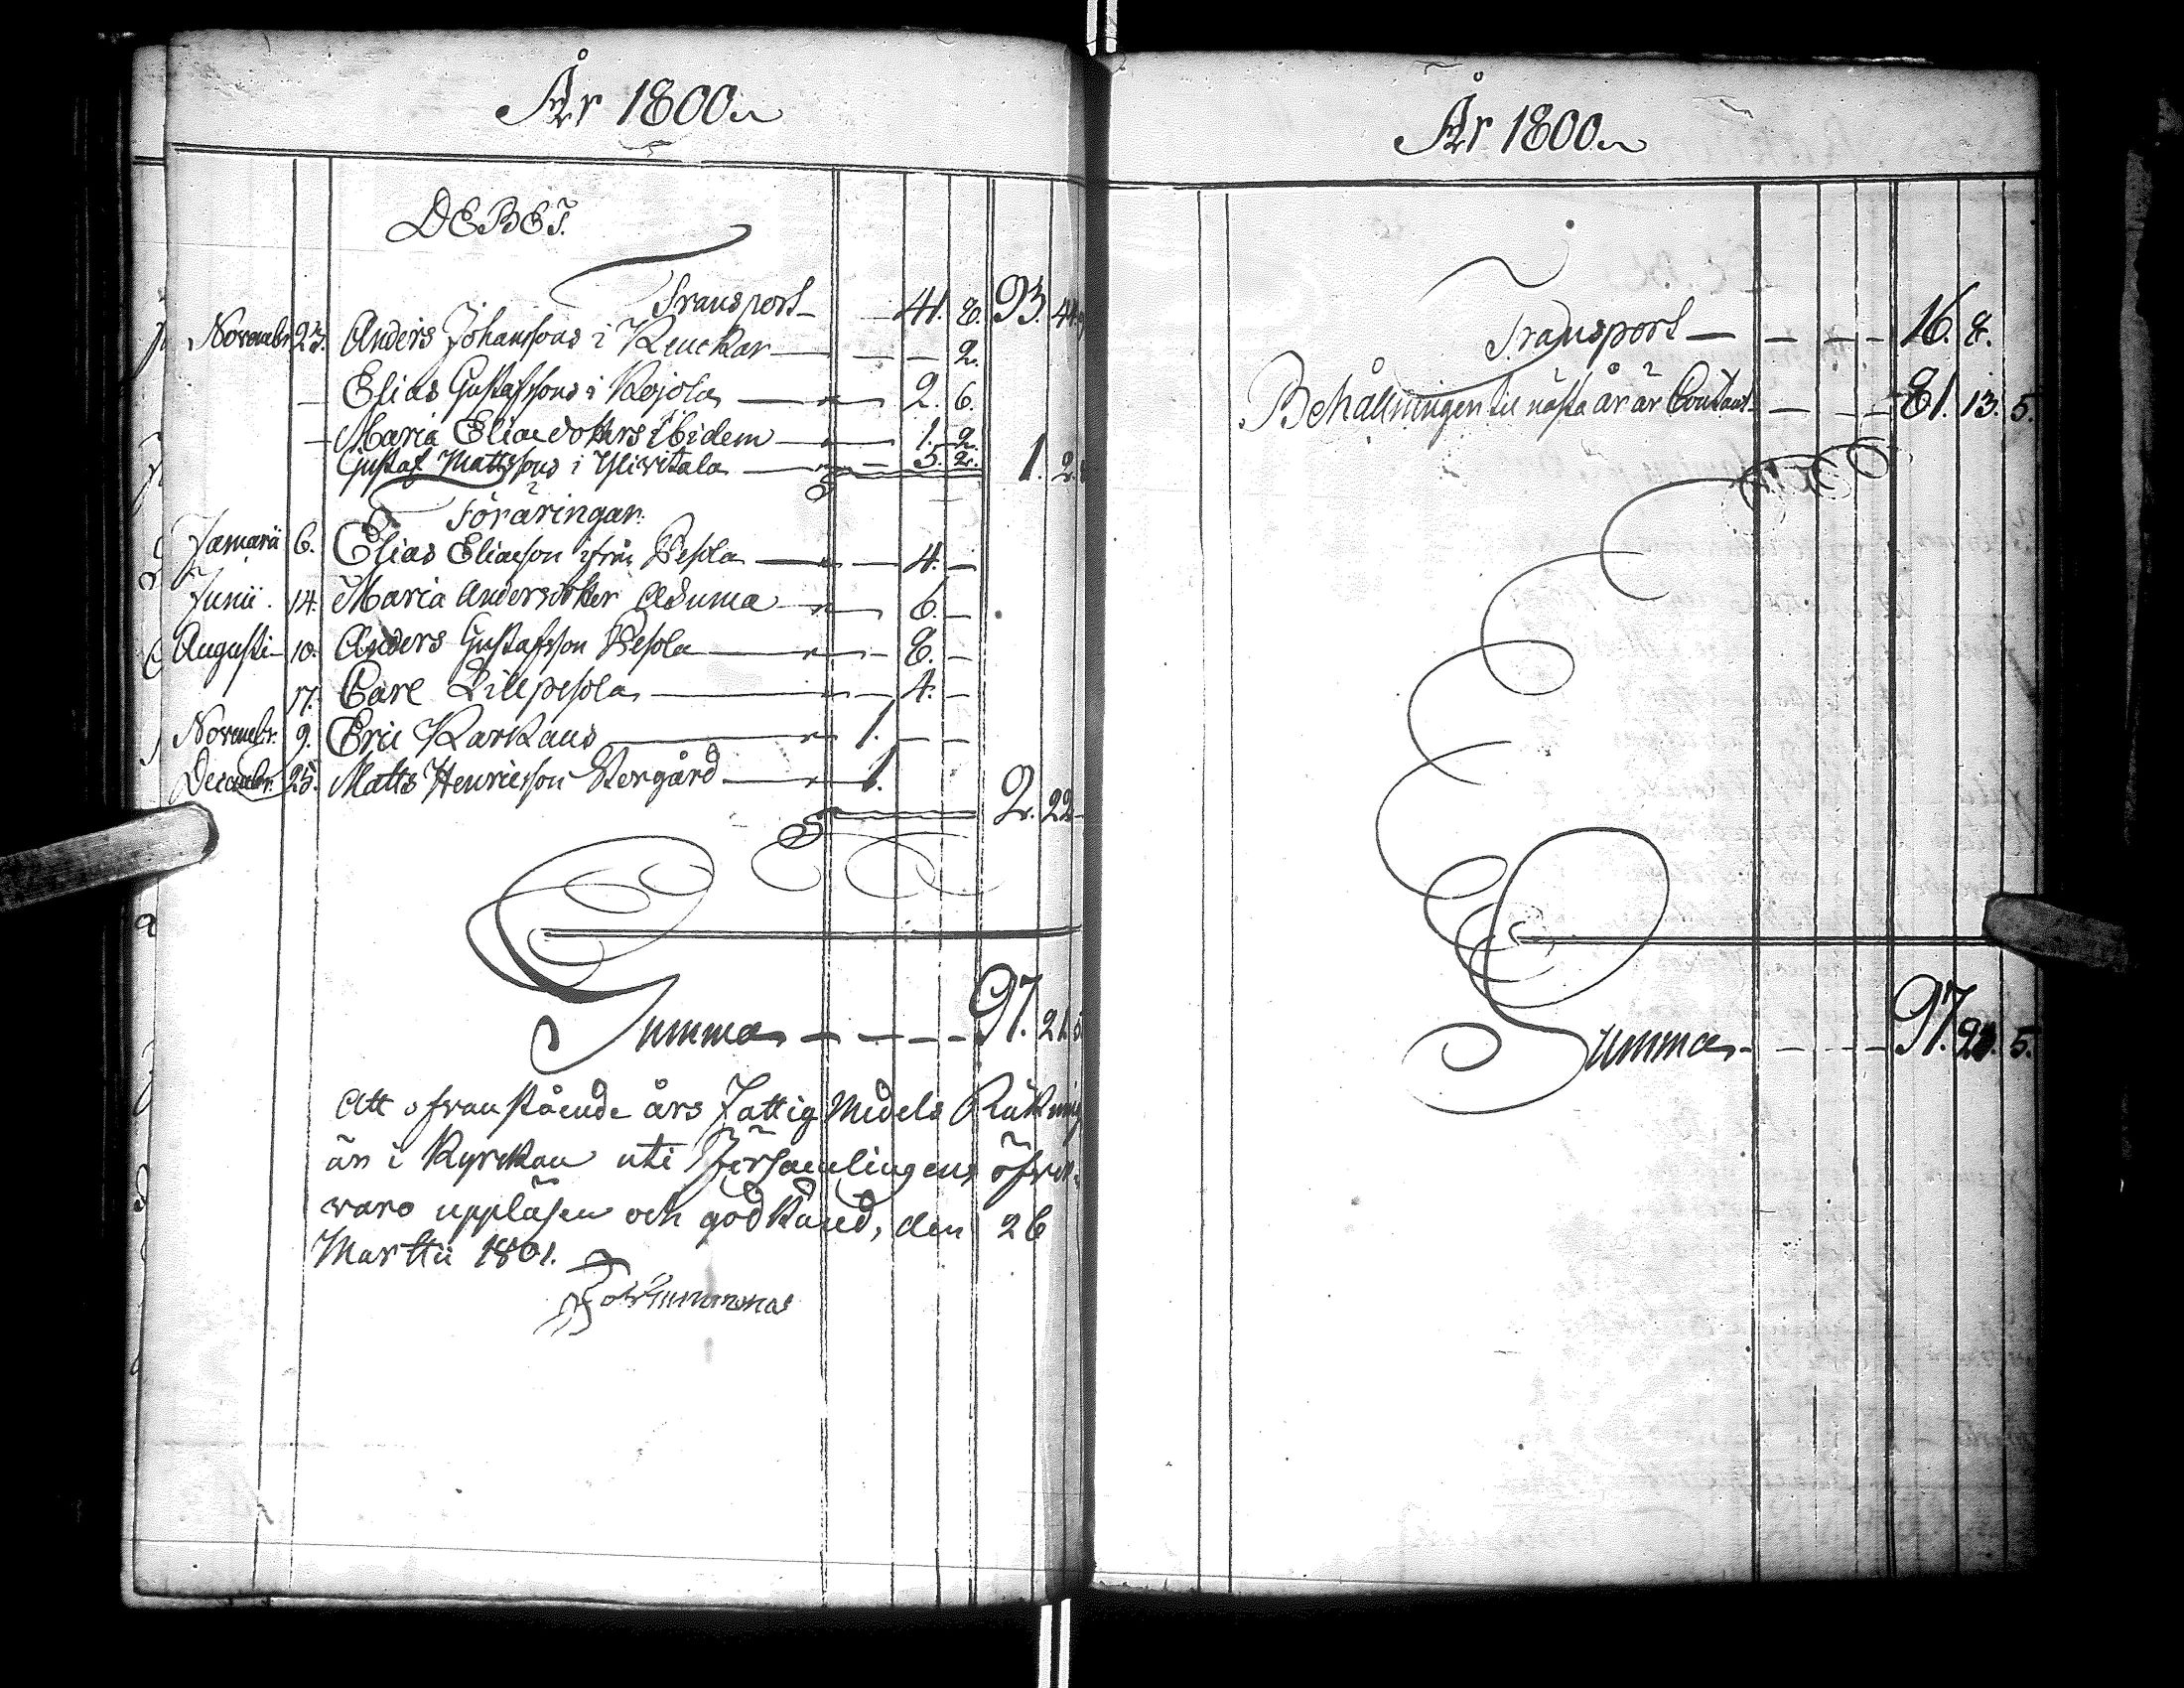 År 1800
DEBET.
Transport 41. 8. 93. 44.
Novembr 23. Anders Johanssons i Kenckar 2.
Elias Gustafssons i Kojola 2. 6.
Maria Eliaedotters ibidem 1. 2.
Gustaf Mattssons i Yliwitala 5. 2. 1. 2.
Föräringar.
Januarii 6. Elias Eliaeson ifrån Pesola 4.
Junii. 14. Maria Andersdotter Asuma 6.
Augusti 10. Anders Gustafsson Pesola 8.
17. Carl Lillpesola 4.
Novembr. 9. Eric Karkaus 1.
Decembr. 25. Matts Henricsson Stergård 1.
2. 22
Summa 97. 21. 5
Att ofvanstående års Fattig Medels Räkning
än i Kyrckan uti Församlingens öfver
varo uppläsen och godkänd, den 26
Martii 1801.
År 1800
Transport 16. 8.
Behållningen til nästa år är Contant 81. 13. 5.
Summa 97. 21. 5.